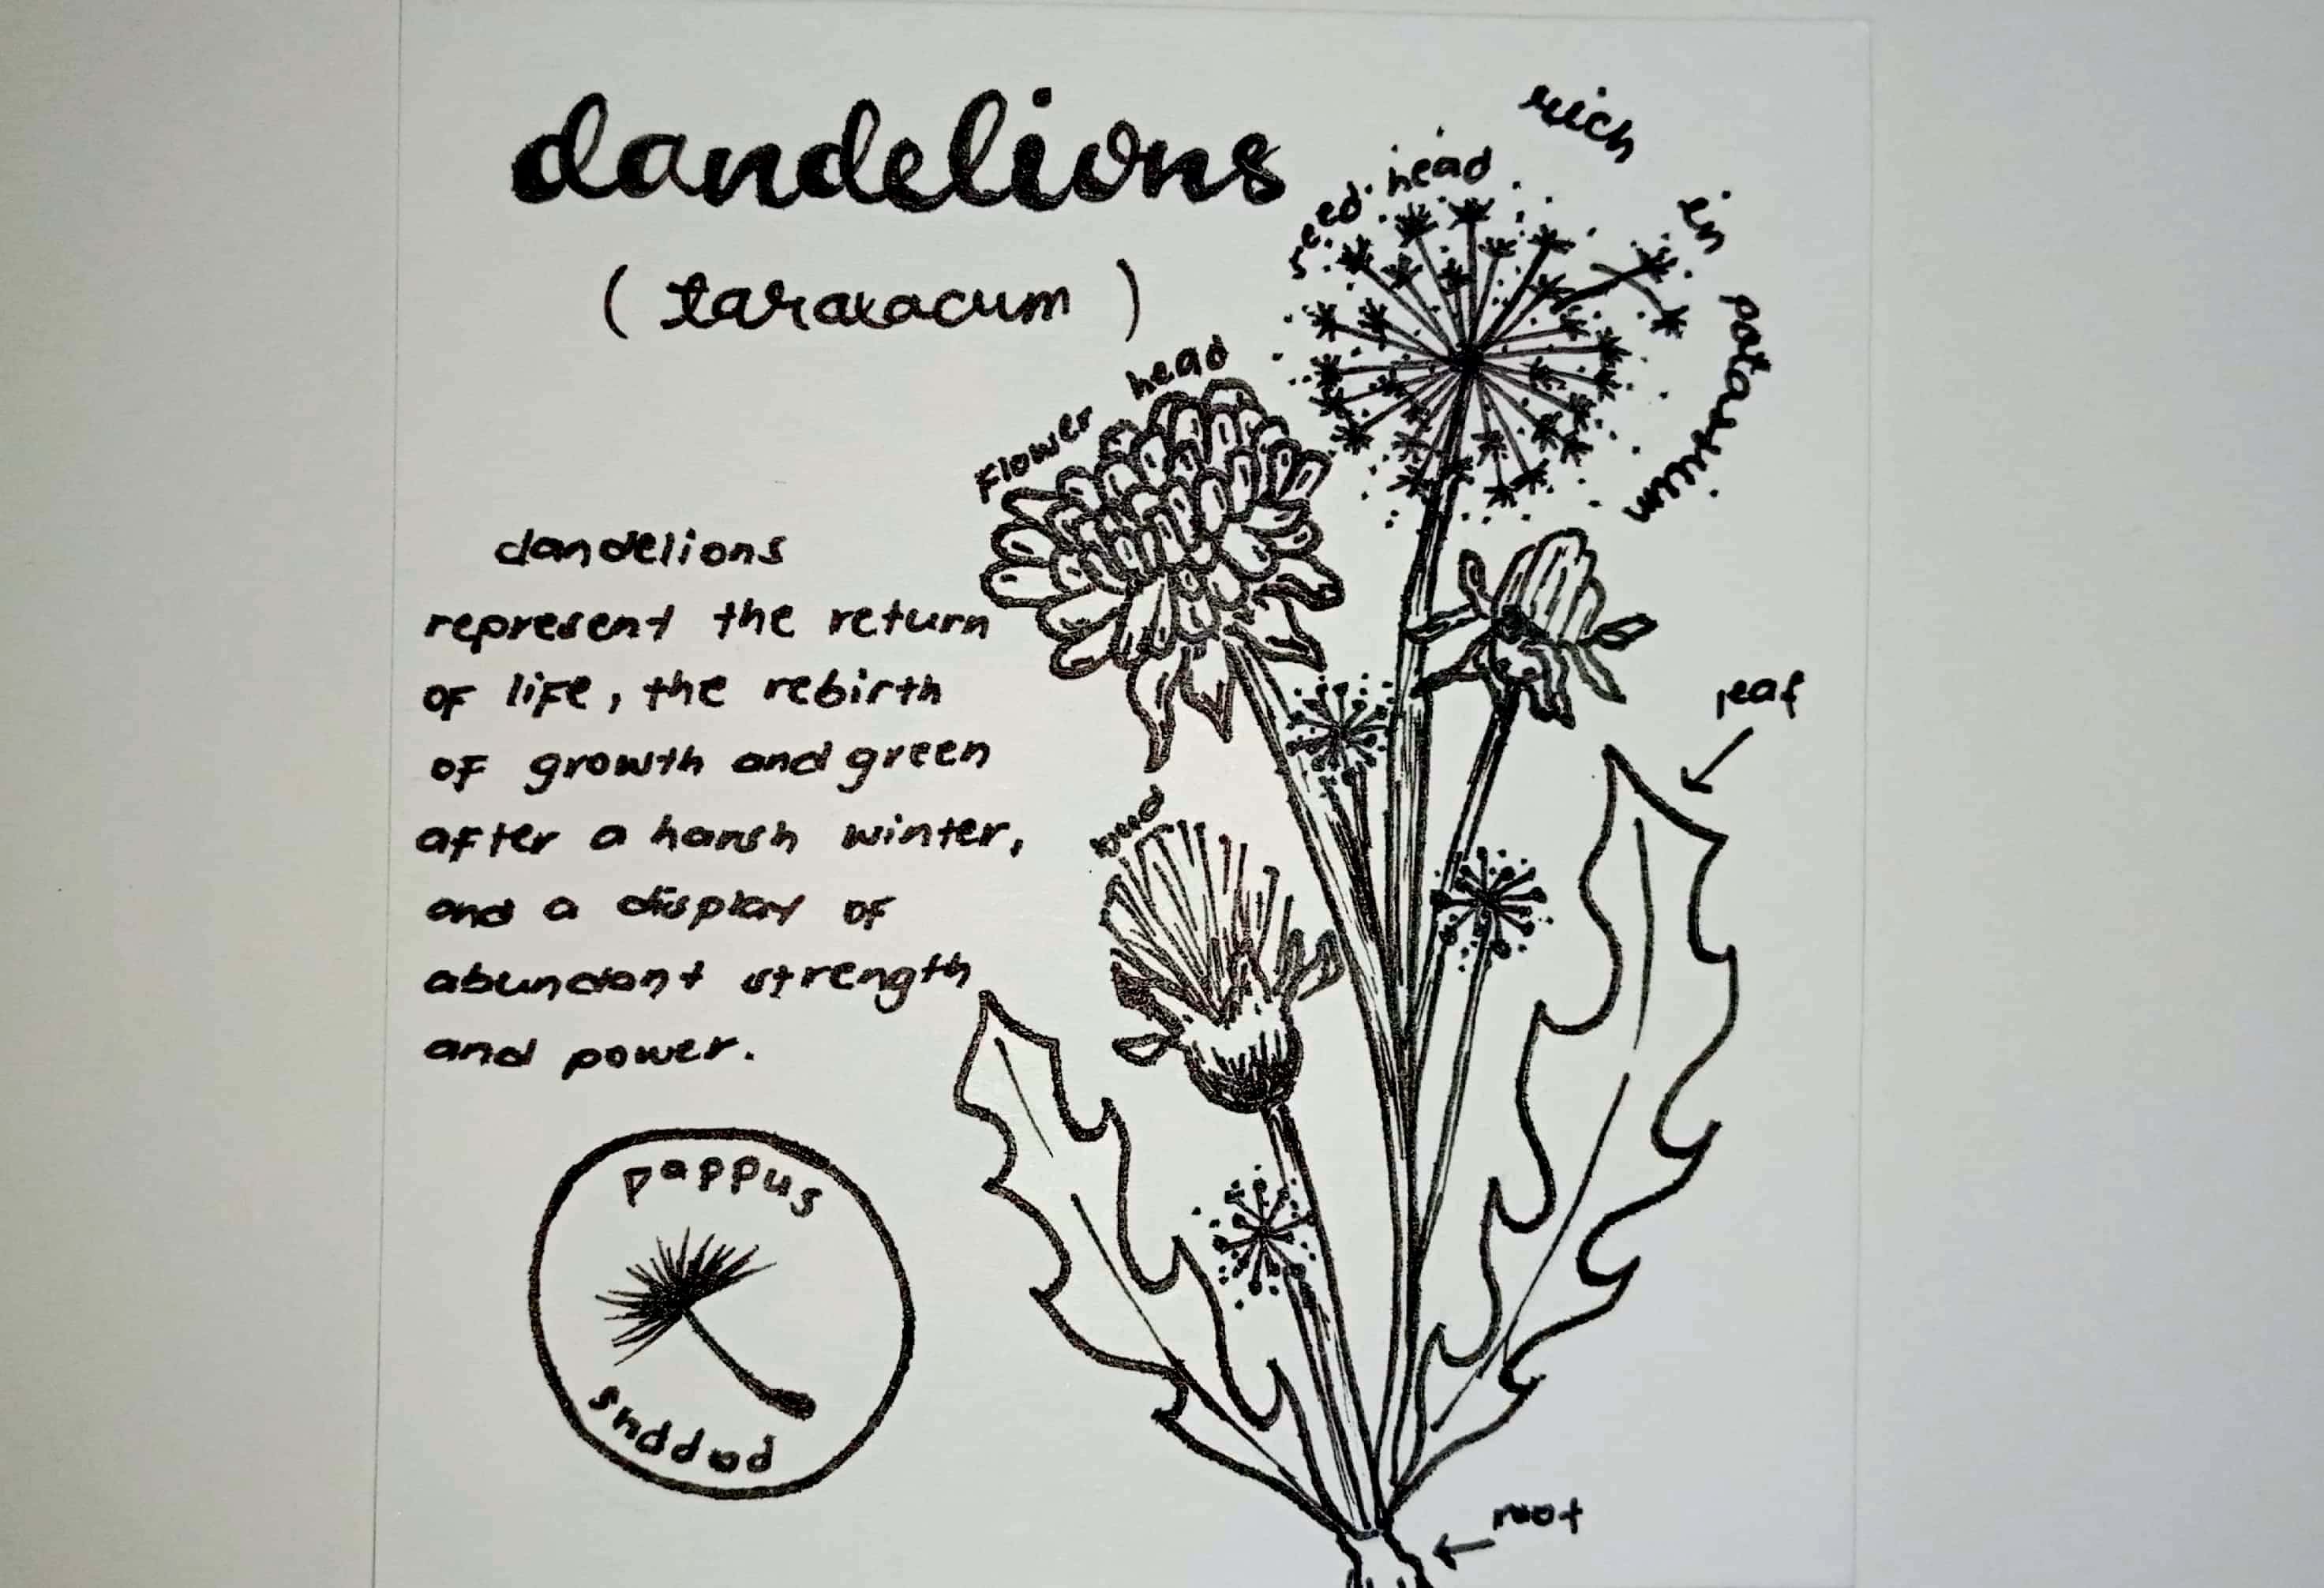 dandelions
(taraxacum)
seed head
rich in potassium
flower head
dandelions
represent the return
of life, the rebirth
of growth and green
after a harsh winter,
and a display of
abundant strength
and power.
leaf
bud
pappus
pappus
root